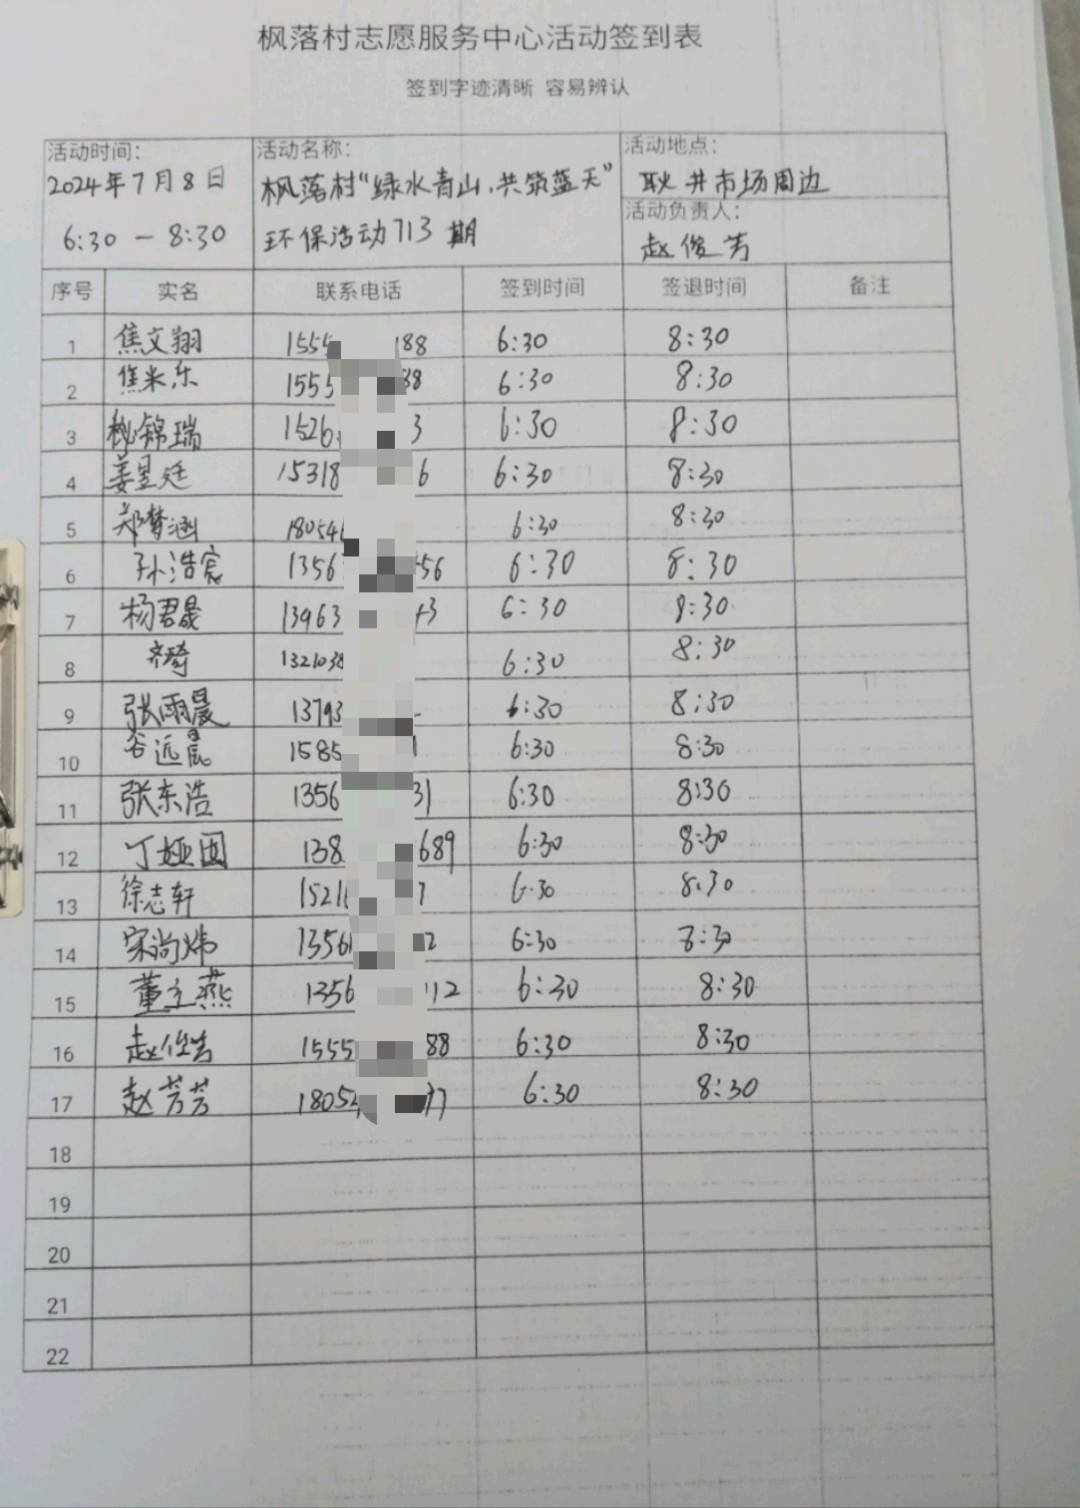 枫落村志愿服务中心活动签到表
签到字迹清晰 容易辨认
活动时间:
2024年7月8日
6:30 — 8:30
活动名称:
枫落村“绿水青山.共筑蓝天”
环保活动713期
活动地点:
耿井市场周边
活动负责人:
赵俊芳
序号 实名 联系电话 签到时间 签退时间 备注
1 焦文翔 1555 188 6:30 8:30
2 焦米乐 1555 88 6:30 8:30
3 锦瑞 1526 3 6:30 8:30
4 姜昱廷 15318 6 6:30 8:30
5 郑梦涵 18054 6:30 8:30
6 孙浩宸 1356 56 6:30 8:30
7 杨君晟 13963 3 6:30 8:30
8 齐琦 1321038 6:30 8:30
9 张雨晨 13793 6:30 8:30
10 谷远晨 1585 6:30 8:30
11 张东浩 1356 31 6:30 8:30
12 丁娅囡 138 689 6:30 8:30
13 徐志轩 1521 7 6:30 8:30
14 宋尚炜 1356 2 6:30 8:30
15 董立燕 1356 112 6:30 8:30
16 赵俊芳 1555 88 6:30 8:30
17 赵芳芳 1805 77 6:30 8:30
18
19
20
21
22